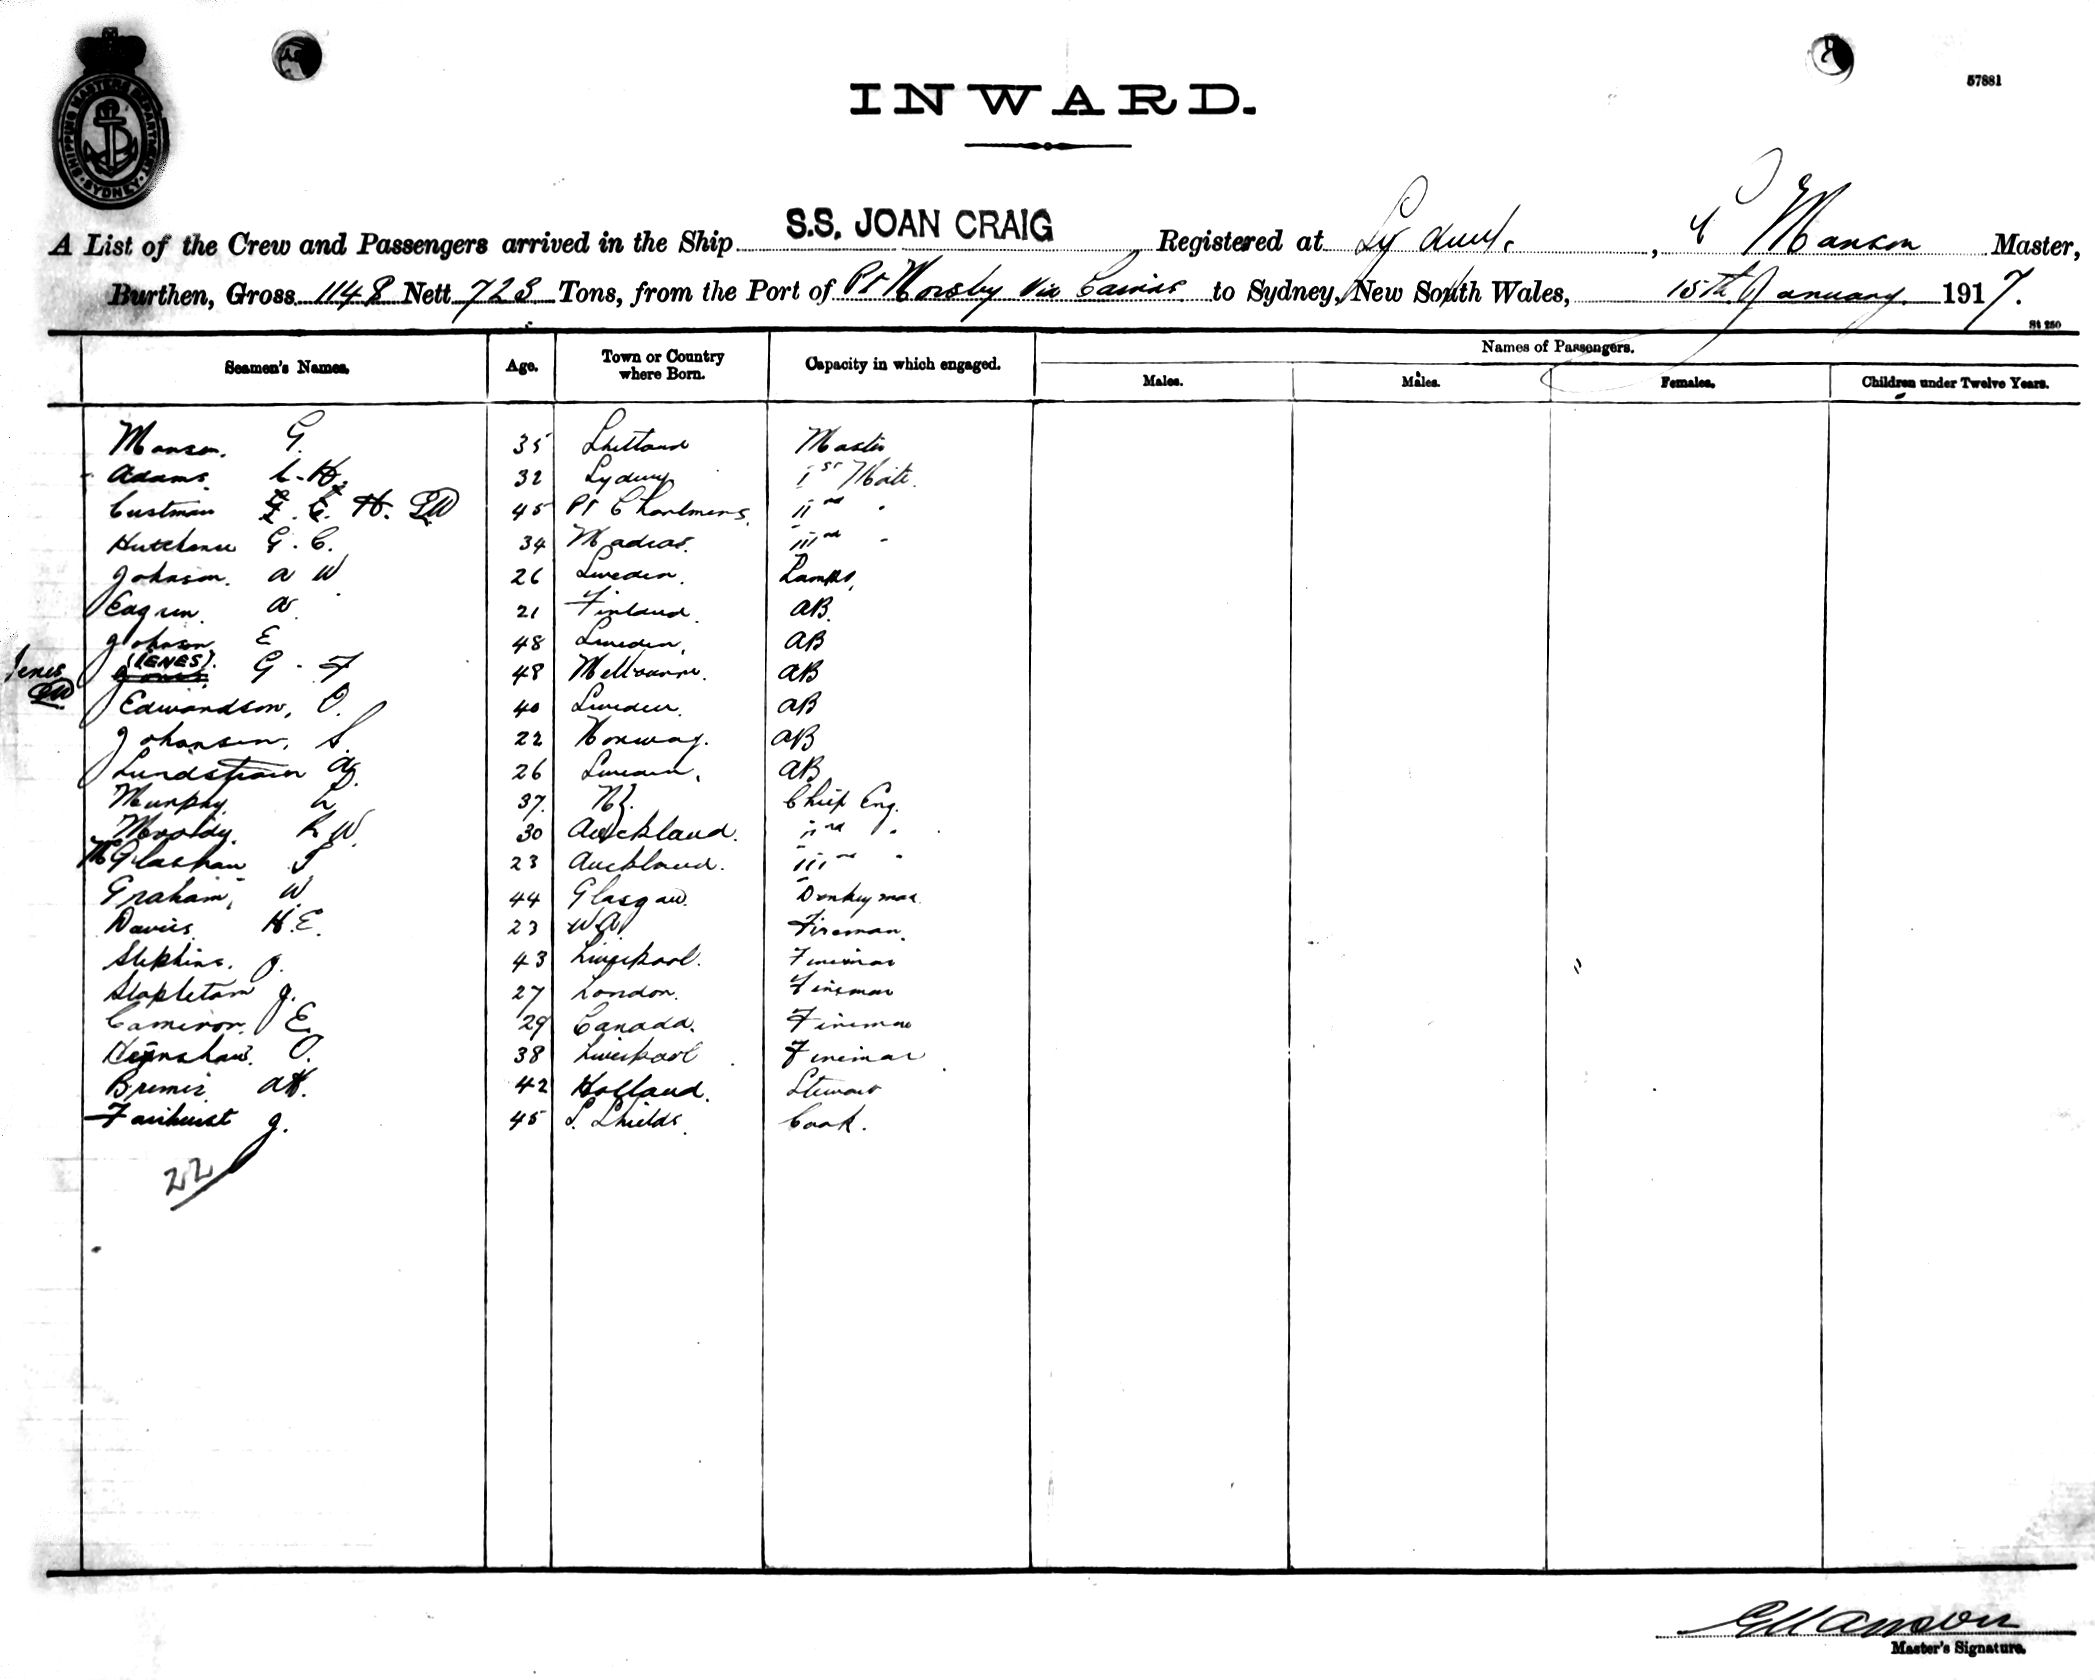 SHIPPING MASTERS DEPARTMENT SYDNEY
57881
INWARD.
A List of the Crew and Passengers arrived in the Ship S.S. JOAN CRAIG Registered at Sydney, G Manson Master,
Burthen, Gross 1148 Nett 723 Tons, from the Port of Pt Moresby via Cairns to Sydney, New South Wales, 15th January 1917.
St 250
Seamen's Names. Age. Town or Country where Born. Capacity in which engaged. Names of Passengers.
Males. Males. Females. Children under Twelve Years.
Manson. G. 35 Shetland Master
Adams. C. H. 32 Sydney 1st Mate.
Custman 45 Pt Charlmers. iind "
Hutchence G. C. 34 Madras. iiird "
Johnson. A W 26 Sweden. Lamps.
Eagren. A. 21 Finland. AB.
Johnson E 48 Sweden. AB
Ienes (IENES). G. F 48 Melbourne. AB
Edwardson, O. 40 Sweden. AB
Johansen, S. 22 Norway. AB
Lundstrom A. 26 Sweden. AB
Murphy. L 37. NZ. Chief Eng.
R W. 30 Auckland. iind "
McGlashan T 23 Auckland. iiird "
Graham, W. 44 Glasgow. Donkeyman.
Davies. H. E. 23 WA Fireman.
Stephens. J. 43 Liverpool. Fireman
Stapleton J. 27 London. Fireman
Cameron. E. 29 Canada. Fireman
Henshaw. O. 38 Liverpool Fireman
Bremer. A H. 42 Holland. Steward
Fairhurst J. 45 S. Shields. Cook.
22
G Manson
Master's Signature.